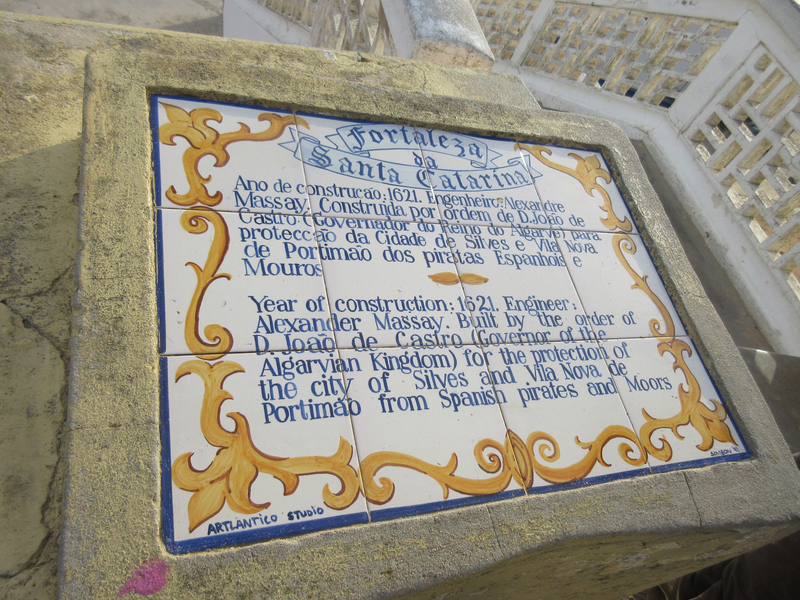 Fortaleza
da
Santa Catarina
Ano de construcao: 1621. Engenheiro: Alexandre
Massay. Construida por ordem de D. João de
Castro (Governador do Reino do Algarve) para
protecção da Cidade de Silves e Vila Nova
de Portimão dos piratas Espanhois e
Mouros
Year of construction: 1621. Engineer:
Alexander Massay. Built by the order of
D. João de Castro (Governor of the
Algarvian Kingdom) for the protection of
the city of Silves and Vila Nova de
Portimão from Spanish pirates and Moors
ARTLANTICO STUDIO